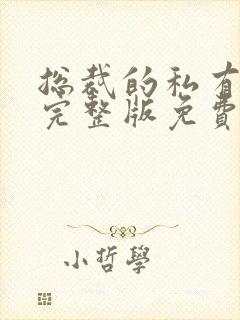 总裁的私有
完整版免費
小哲學